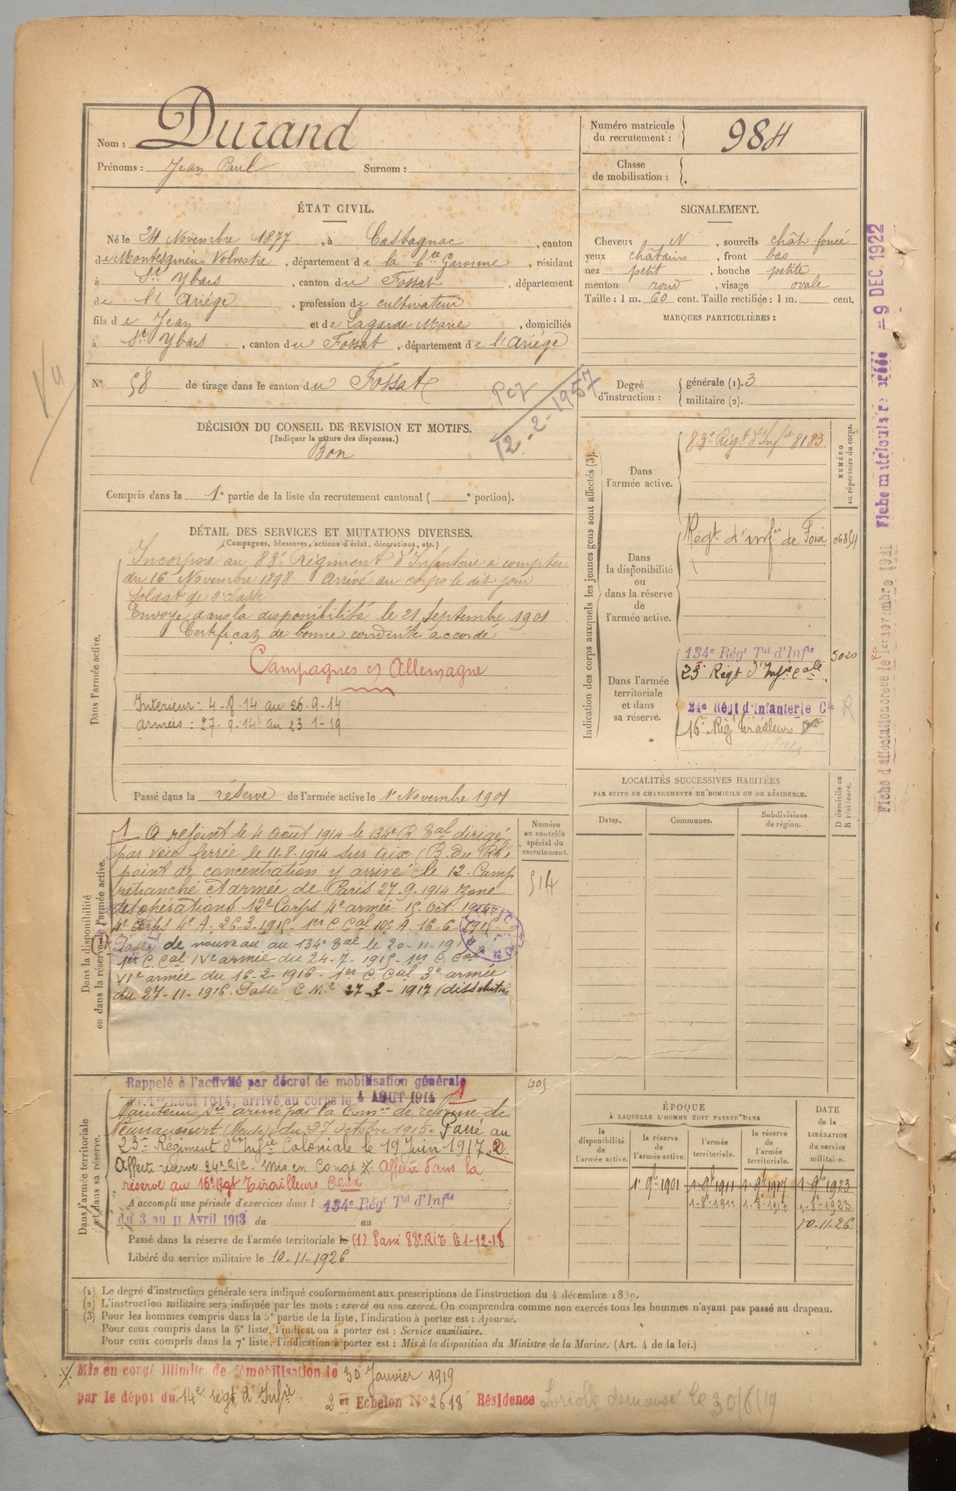 Nom : Durand
Prénoms : Jean Paul Surnom :
Numéro matricule du recrutement : 984
Classe de mobilisation :
ÉTAT CIVIL.
Né le 24 Novembre 1877, à Castagnac, canton
de Montesquieu-Volvestre, département de la Hte Garonne, résidant
à St Ybars, canton du Fossat, département
de l'Ariége, profession de cultivateur
fils de Jean et de Lagarde Marie, domiciliés
à St Ybars, canton du Fossat, département de l'Ariége
N° 58 de tirage dans le canton du Fossat
12-2-1957
DÉCISION DU CONSEIL DE REVISION ET MOTIFS.
(Indiquer la nature des dispenses.)
Bon
Compris dans la 1e partie de la liste du recrutement cantonal ( e portion).
SIGNALEMENT.
Cheveux N, sourcils chât foncé
yeux châtains, front bas
nez petit, bouche petite
menton rond, visage ovale
Taille : 1 m. 60 cent. Taille rectifiée : 1 m. cent.
MARQUES PARTICULIÈRES :
Degré d'instruction : générale (1). 3
militaire (2).
DÉTAIL DES SERVICES ET MUTATIONS DIVERSES.
(Campagnes, blessures, actions d'éclat, décorations, etc.)
Dans l'armée active.
Incorporé au 83e Régiment d'Infanterie à compter
du 16 Novembre 1898. Arrivé au corps le dit jour
soldat de 2e classe
Envoyé dans la disponibilité le 21 Septembre 1901
Certificat de bonne conduite accordé
Campagnes c/ Allemagne
Intérieur : 4-8-14 au 26-9-14
armées : 27-9-14 au 23-1-19
Passé dans la réserve de l'armée active le 1e Novembre 1901
Indication des corps auxquels les jeunes gens sont affectés (3).
NUMÉRO au répertoire du corps.
Dans l'armée active.
83e Régt d'Infie 8183
Dans la disponibilité ou dans la réserve de l'armée active.
Régt d'infie de Foix
Dans l'armée territoriale et dans sa réserve.
134e Régt Tal d'Infie 5020
23e Régt d'Infie Cale
24e Régt d'Infanterie Cle
16e Rég Tirailleurs
Fiche matriculaire créée = 9 DEC. 1922
Dans la disponibilité ou dans la réserve de l'armée active.
Numéro au contrôle spécial du recrutement.
514
1 A rejoint le 4 août 1914 le 134e R. Tal dirigé
par voie ferrée le 11.8.1914 sur Aix (B. du Rh.)
point de concentration y arrivé le 12. Camp
retranché et armée de Paris 27.9.1914 zone
des opérations 12e Corps 4e armée 15 Oct. 1914
4e Corps 4e A. 26.3.1915. 1er C. Cal 10e A 16.6.1915
Passé de nouveau au 134e Tal le 20-11-191
1er C. Cal IVe armée du 24-7-1915 1er C. Cal
VIe armée du 16-2-1916 1er C. Cal 3e armée
du 27-11-1916. Passé C. Mre 27-2-1917 (dissolution
LOCALITÉS SUCCESSIVES HABITÉES
PAR SUITE DE CHANGEMENTS DE DOMICILE OU DE RÉSIDENCE.
Dates. Communes. Subdivisions de région. D domicile ou R résidence.
Dans l'armée territoriale et dans sa réserve.
Rappelé à l'activité par décret de mobilisation générale
du 1er AOUT 1914, arrivé au corps le 4 AOUT 1914 1
Maintenu Sce armé par la Comon de réforme de
(Meuse) du 27 octobre 1915. Passé au
23e Régiment d'Infie Coloniale le 19 Juin 1917. 2
Affecté réserve 24e R.I.C. Mis en Congé X Affecté dans la
réserve au 16e Rgt Tirailleurs
A accompli une période d'exercices dans l 134e Rég Tal d'Infie
du 3 au 11 Avril 1913 du au
Passé dans la réserve de l'armée territoriale le (1) Passé 88e RIT le 1-12-18
Libéré du service militaire le 10-11-1926
ÉPOQUE
À LAQUELLE L'HOMME DOIT PASSER DANS
la disponibilité de l'armée active. la réserve de l'armée active. l'armée territoriale. la réserve de l'armée territoriale.
DATE DE LA LIBÉRATION DU SERVICE militaire.
1e 9bre 1901 1e 9bre 1911 1e 9bre 1917 1e 9bre 1923
1-8-1911 1-8-1917 1-8-1923
10.11.26
(1) Le degré d'instruction générale sera indiqué conformément aux prescriptions de l'instruction du 4 décembre 1889.
(2) L'instruction militaire sera indiquée par les mots : exercé ou non exercé. On comprendra comme non exercés tous les hommes n'ayant pas passé au drapeau.
(3) Pour les hommes compris dans la 5e partie de la liste, l'indication à porter est : Ajourné.
Pour ceux compris dans la 6e liste, l'indication à porter est : Service auxiliaire.
Pour ceux compris dans la 7e liste, l'indication à porter est : Mis à la disposition du Ministre de la Marine. (Art. 4 de la loi.)
X. Mis en congé illimité de démobilisation le 30 Janvier 1919
par le dépôt du 14e régt d'Infie 2e Echelon N° 2618 Résidence